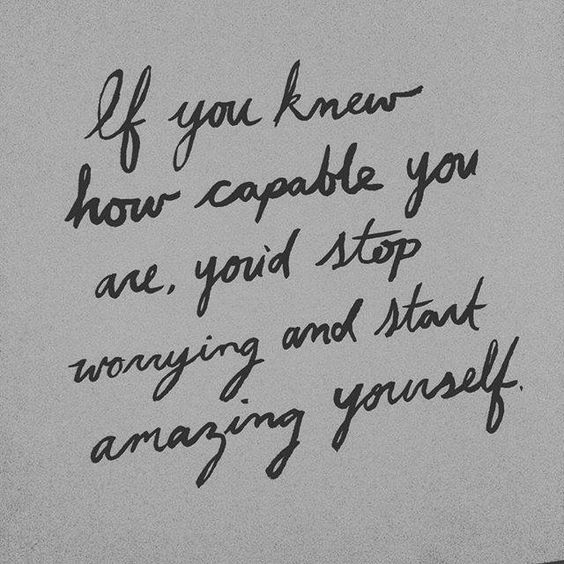 If you knew
how capable you
are, you'd stop
worrying and start
amazing yourself.